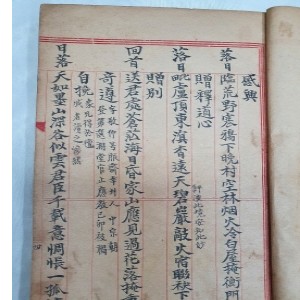 感興
落日臨荒野寒鴉下晚村空林烟火冷白屋掩衡門
贈釋道心
落日毗盧頂東溟杳遠天碧巖敲火宿聯袂下
贈別
回首送君處蒼茫海日昏家山應見過花落掩
奇遵
自挽
日落天如墨山深谷似雲君臣千載意惆悵一孤